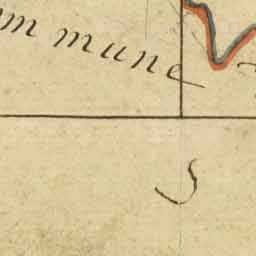 m mune
S